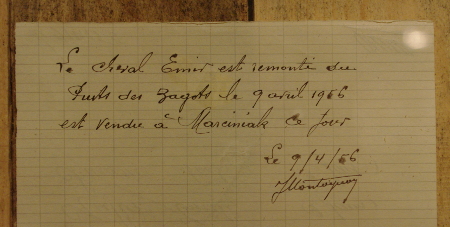 Le cheval Emir est remonté du
Puits des Zagots le 9 avril 1966
est vendu à Marciniak ce jour
Le 9/4/66